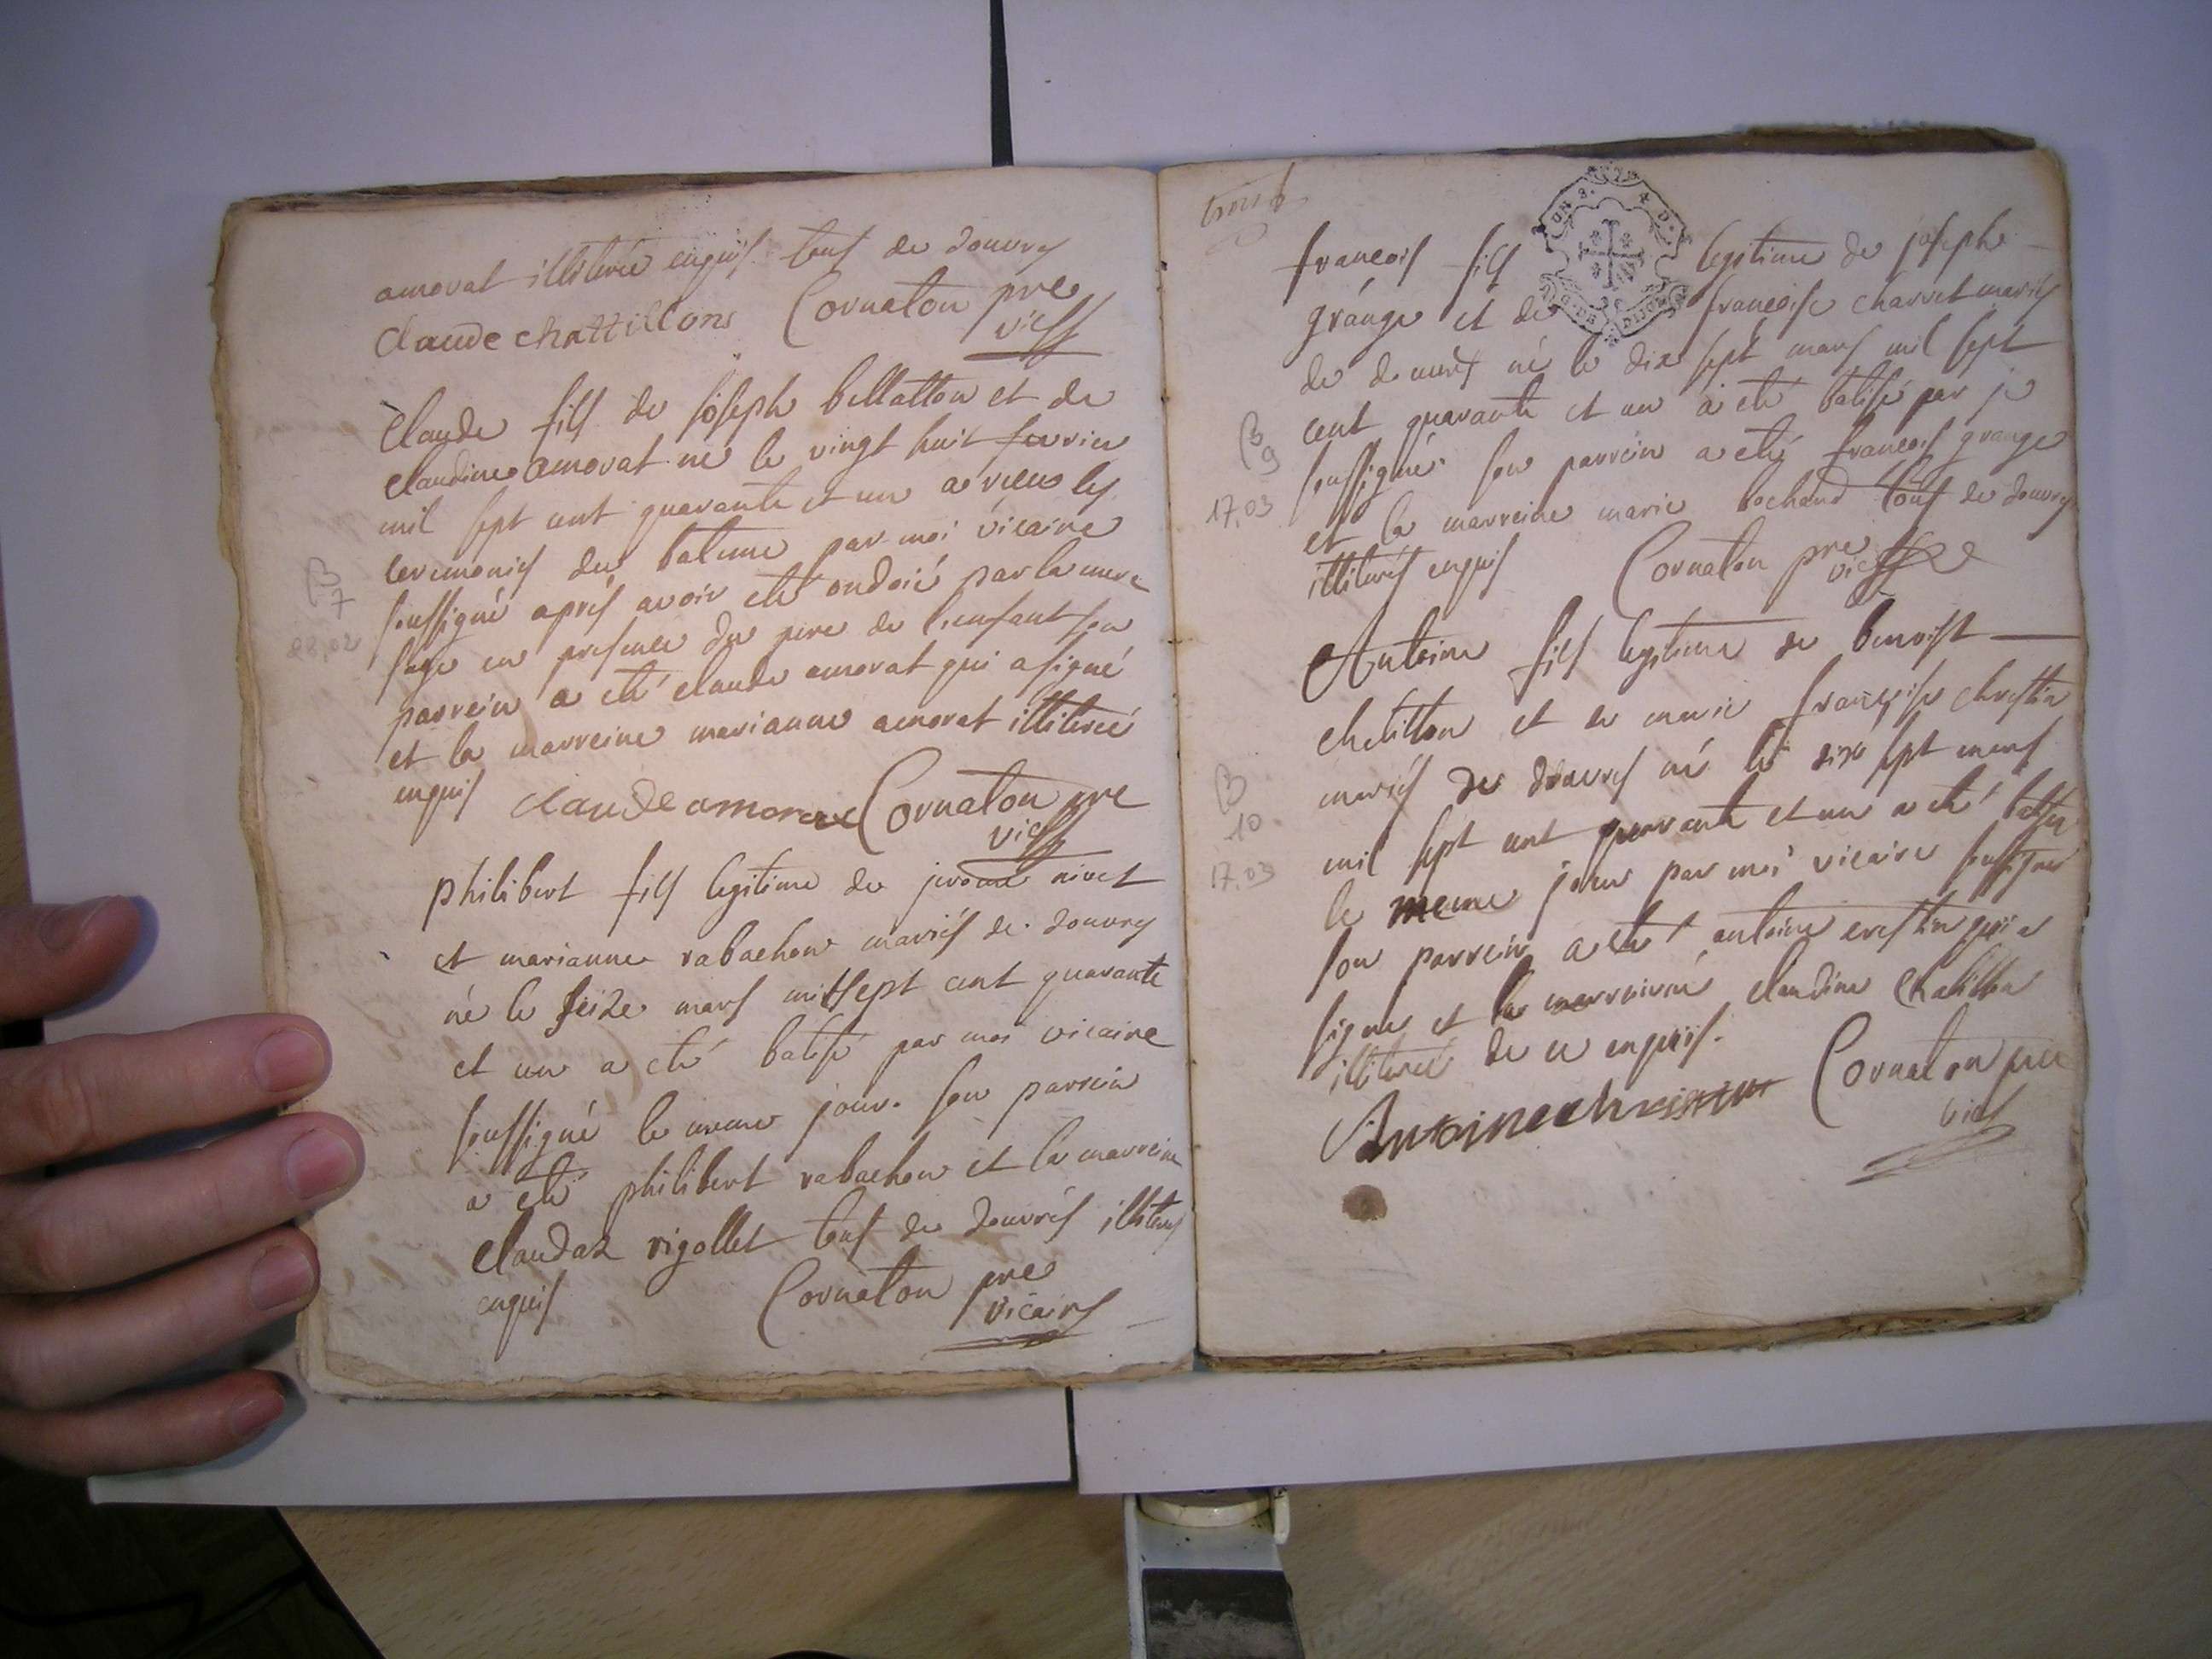 amorat illitéré enquis tous de douvres
Claude chattillons Cornaton pre
vic
Claude fils de joseph bellatton et de
claudine amorat né le vingt huit fevrier
mil sept cent quarante et un a receu les
ceremonies du bateme par moi vicaire
soussigné aprés avoir eté ondoié par la mere
sage en presence du pere de l'enfant son
parrein a eté claude amorat qui a signé
et la marreine marianne amorat illiterée
enquis claude amorat Cornaton pre
vic
B
7
28.02
philibert fils legitime de jerome nivet
et marianne rabachon mariés de douvres
né le seize mars mil sept cent quarante
et un a eté batisé par moi vicaire
soussigné le meme jour. son parrein
a eté philibert rabachon et la marreine
claudaz rigollet tous de douvres illiterés
enquis Cornaton pre
vicaire
trois
francois fils legitime de joseph
grange et de francoise charvet mariés
de douvres né le dix sept mars mil sept
cent quarante et un a eté batisé par je
soussigné. son parrein a eté francois grange
et la marreine marie bochard tous de douvres
illiterés enquis Cornaton pre
vic
B
9
17.03
Antoine fils legitime de benoist
chatillon et de marie françoise chrestin
mariés de douvres né le dix sept mars
mil sept cent quarante et un a eté batisé
le meme jour par moi vicaire soussigné
son parrein a eté antoine crestin qui a
signé et la marreine claudine Chatillon
illiterée de ce enquis.
Antoine christin Cornaton pre
vic
B
10
17.03